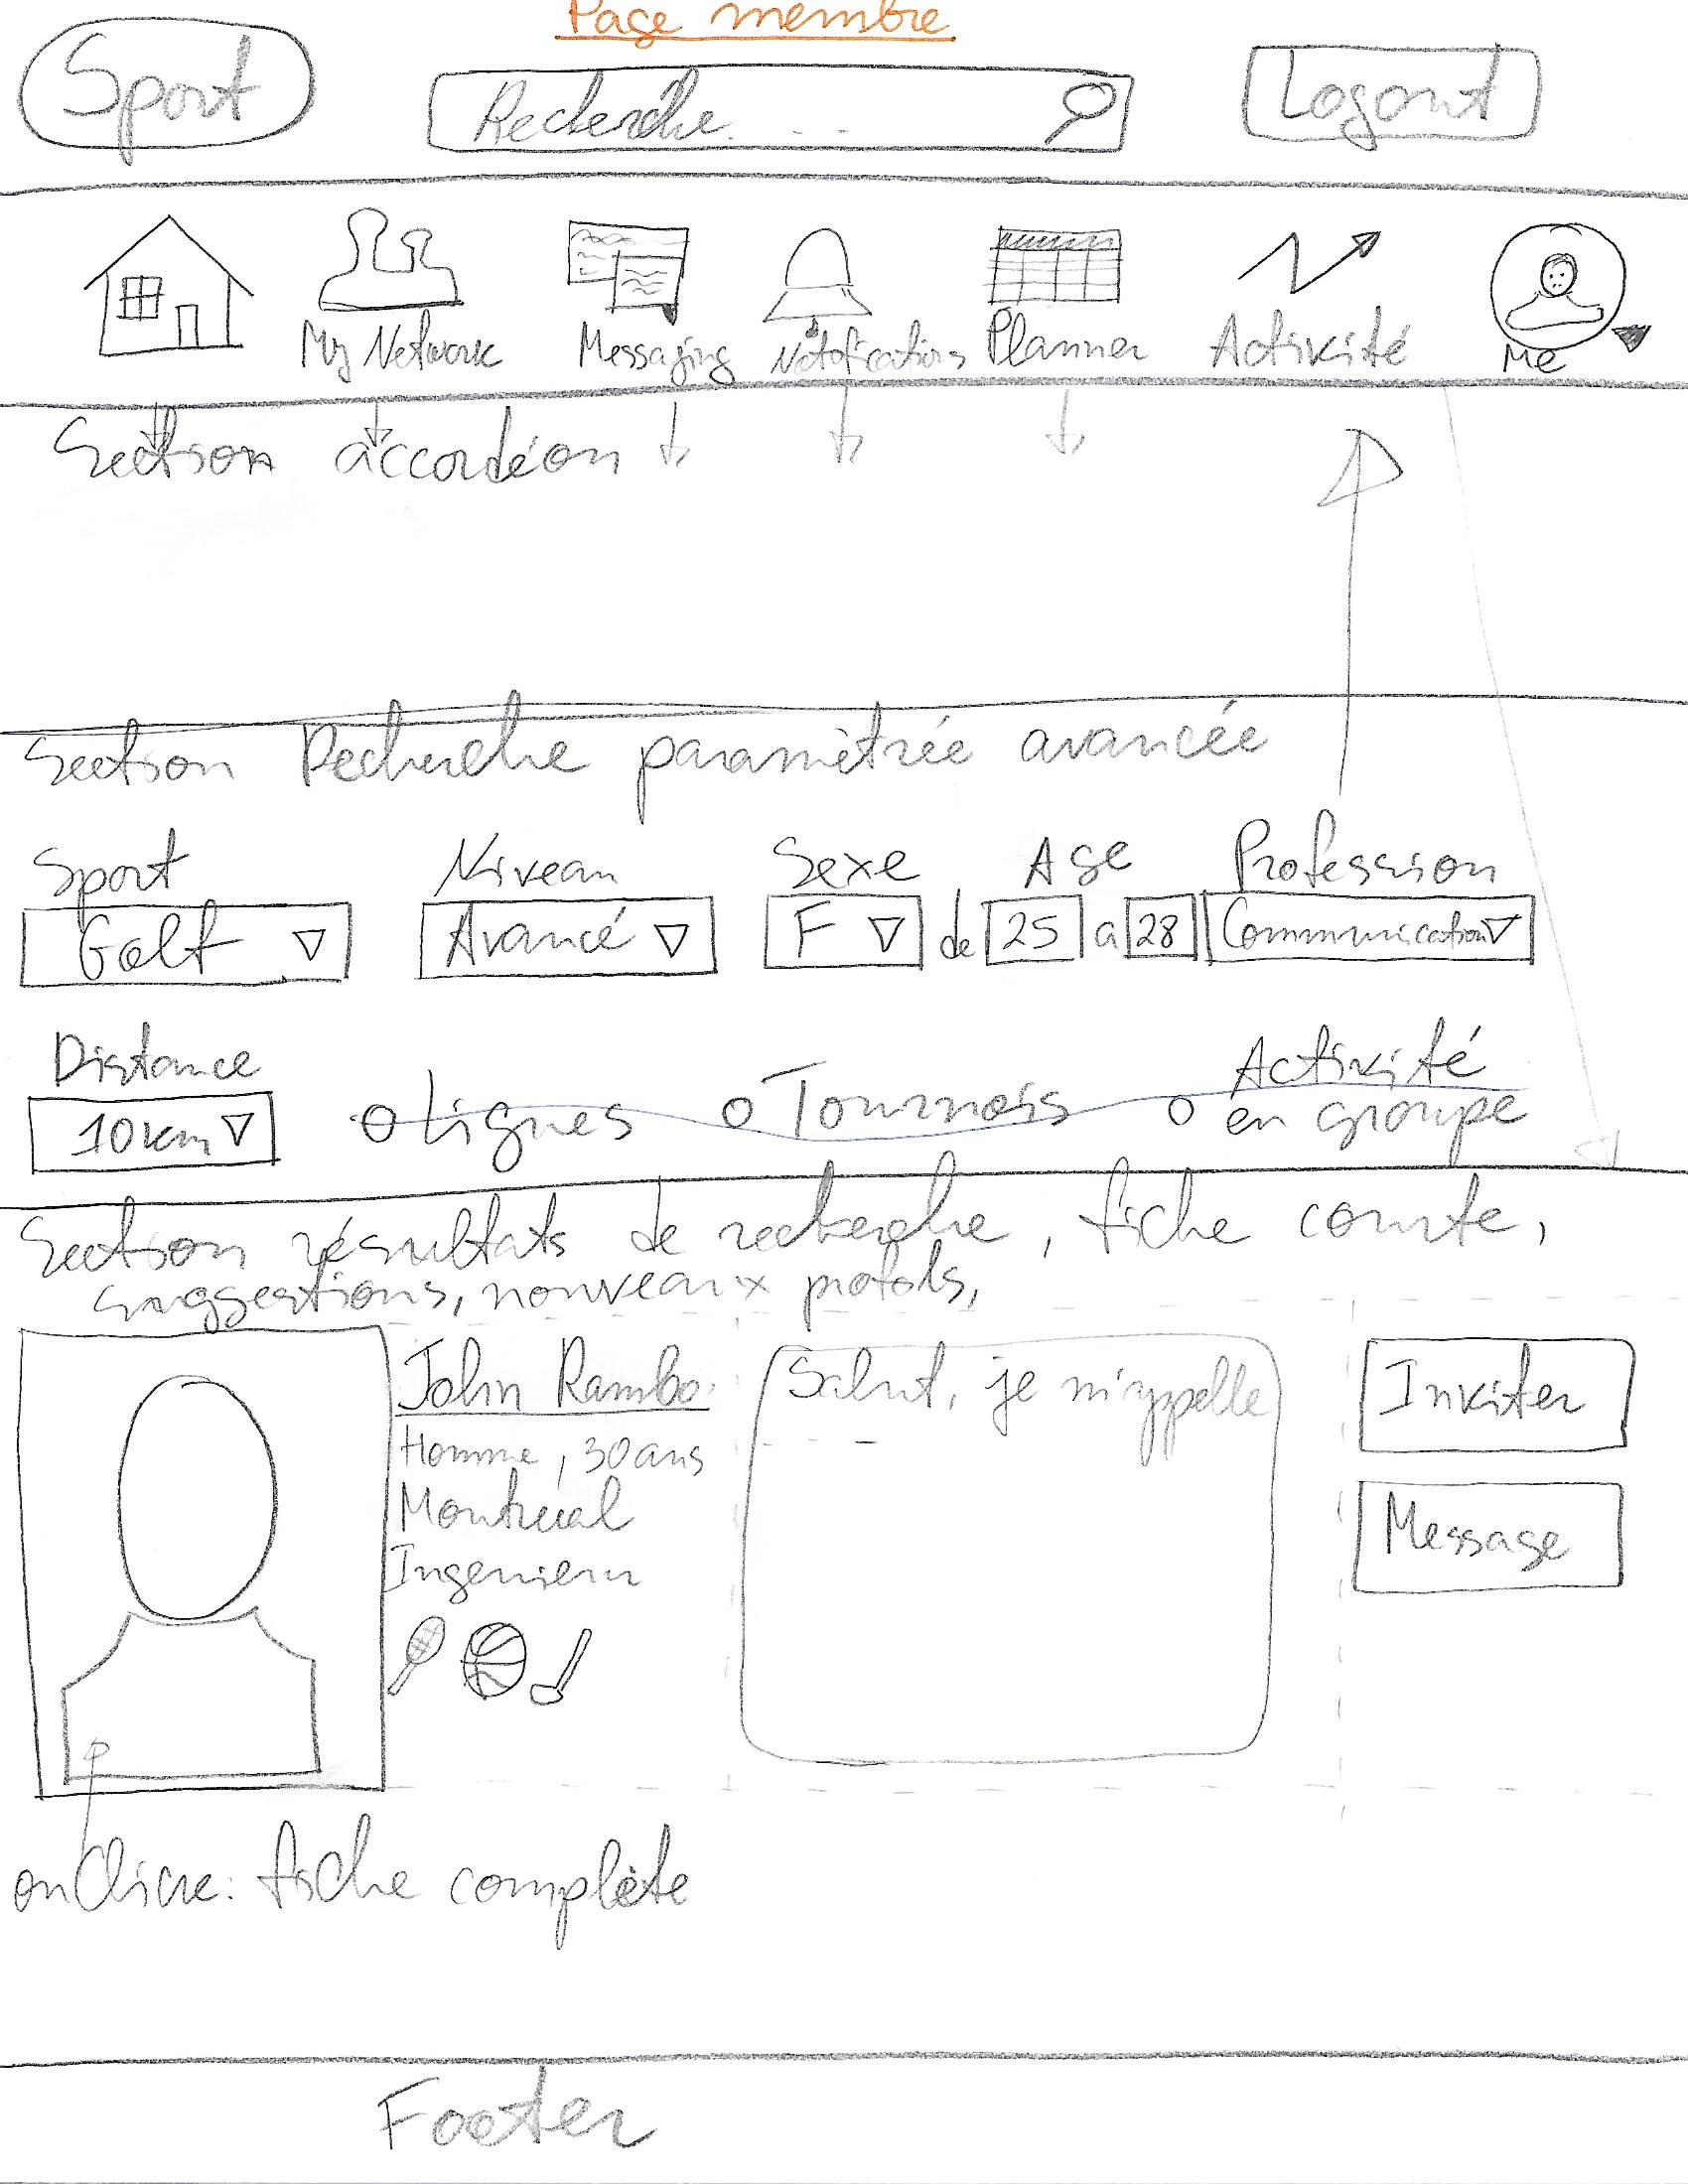 Page membre
Sport
Recherche....
Logout
My Network
Messaging
Notofications
Planner
Activité
Me
Section accordéon
Section Recherche paramètrée avancée
Sport
Niveau
Sexe
Age
Profession
Golf
Avancé
F
de 25 a 28
Communication
Distance
10km
Ligues
Tournois
Activité
en groupe
Section résultats de recherche, fiche courte,
suggestions, nouveaux
John Rambo
Homme, 30 ans
Montréal
Ingenieur
Salut, je m'appelle
Inviter
Message
onClick: fiche complète
Footer